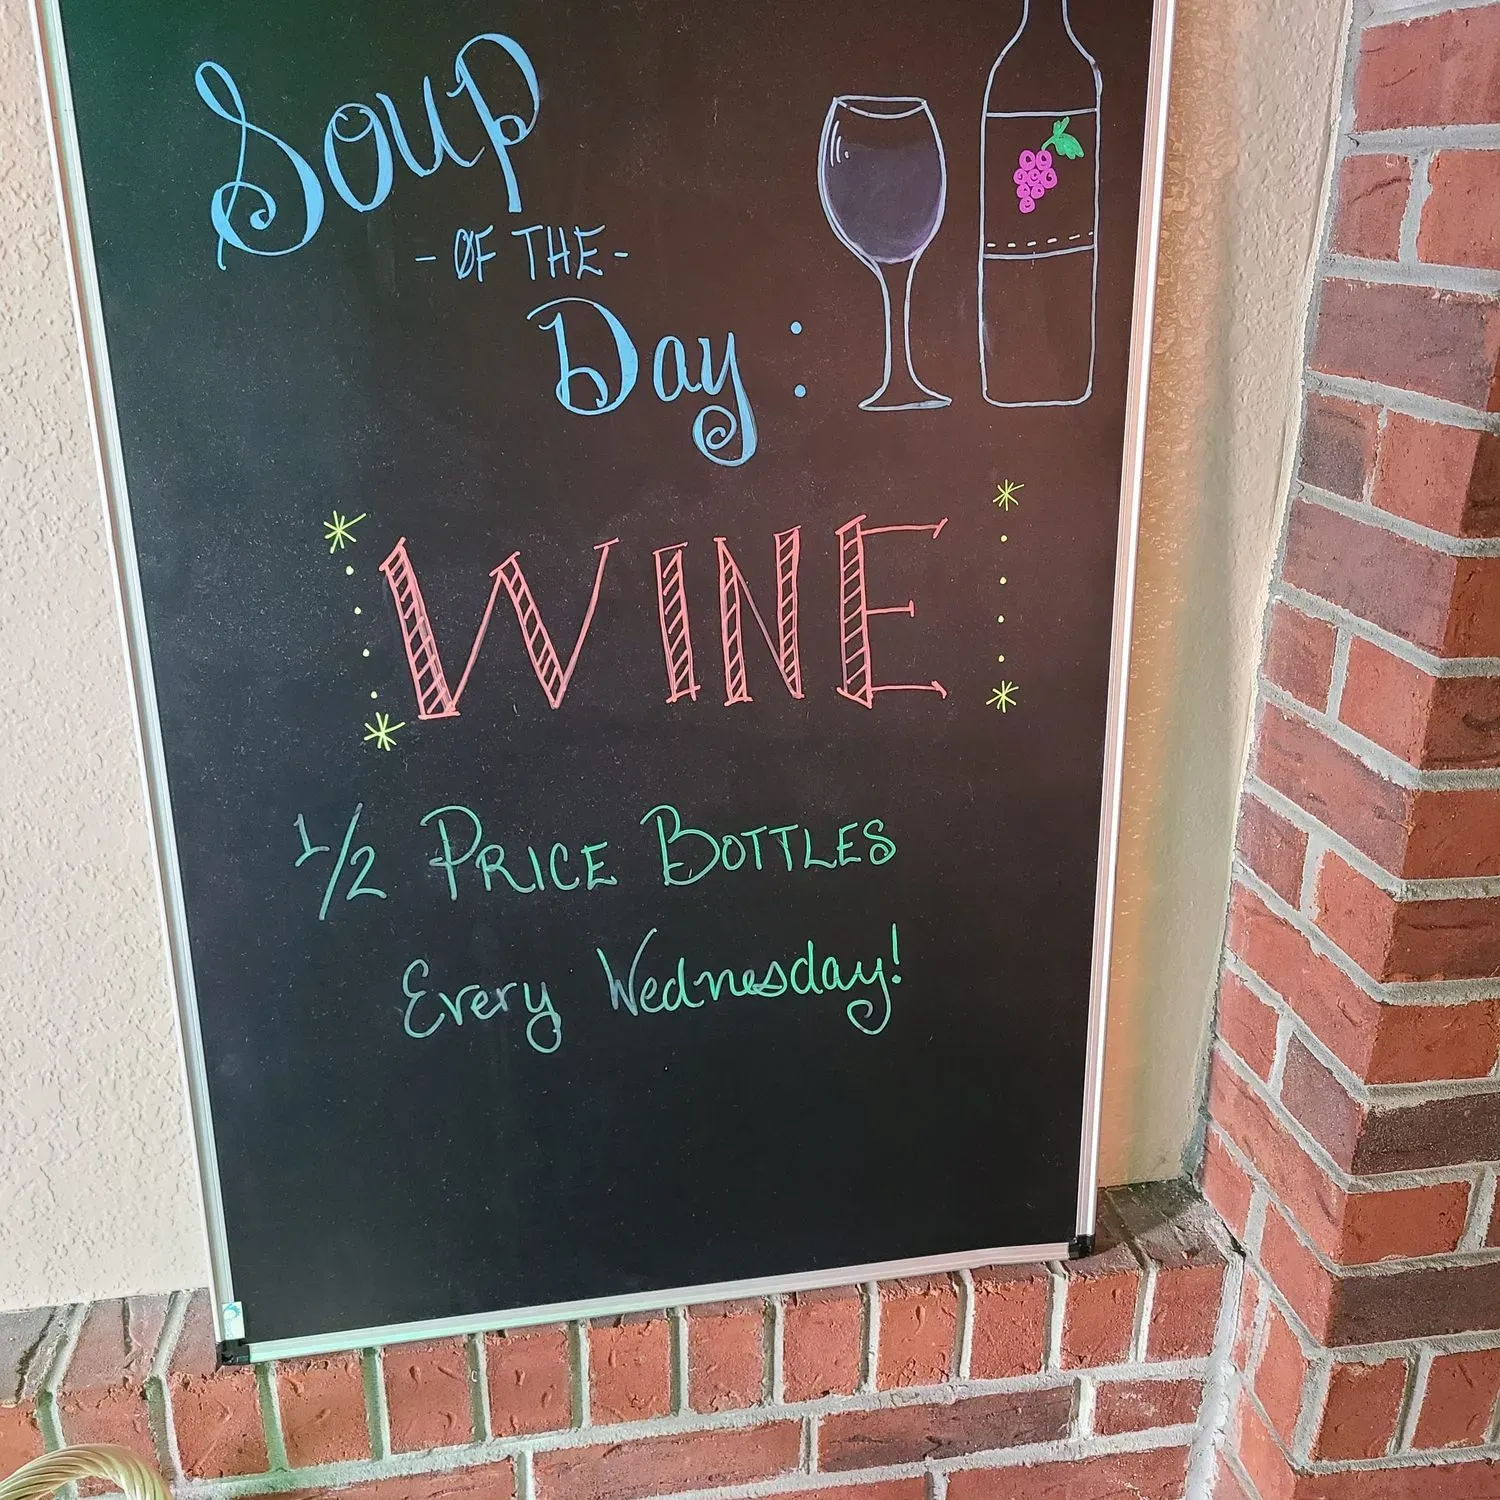 Soup
- OF THE -
Day :
WINE
1/2 PRICE BOTTLES
Every Wednesday!